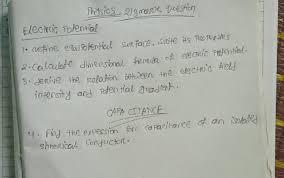 Physics 2 marks Question
Electric Potential
1. Define equipotential surface. Write its Properties
2. Calculate dimensional formula of electric Potential.
3. Derive the relation between the electric field
intensity and Potential gradient.
CAPACITANCE
4. Find the expression for capacitance of an isolated
spherical conductor.